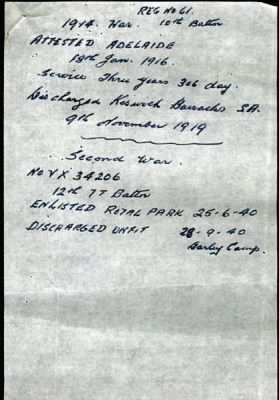 REG NO 61.
1914 War. 10th Battn
ATTESTED ADELAIDE
18th Jan. 1916.
Service Three years 306 day.
Discharged Keswick Barracks SA.
9th November 1919
Second War.
No VX 34206
12th TT Battn
ENLISTED ROYAL PARK 25-6-40
DISCHARGED UNFIT 28-9-40
Camp.